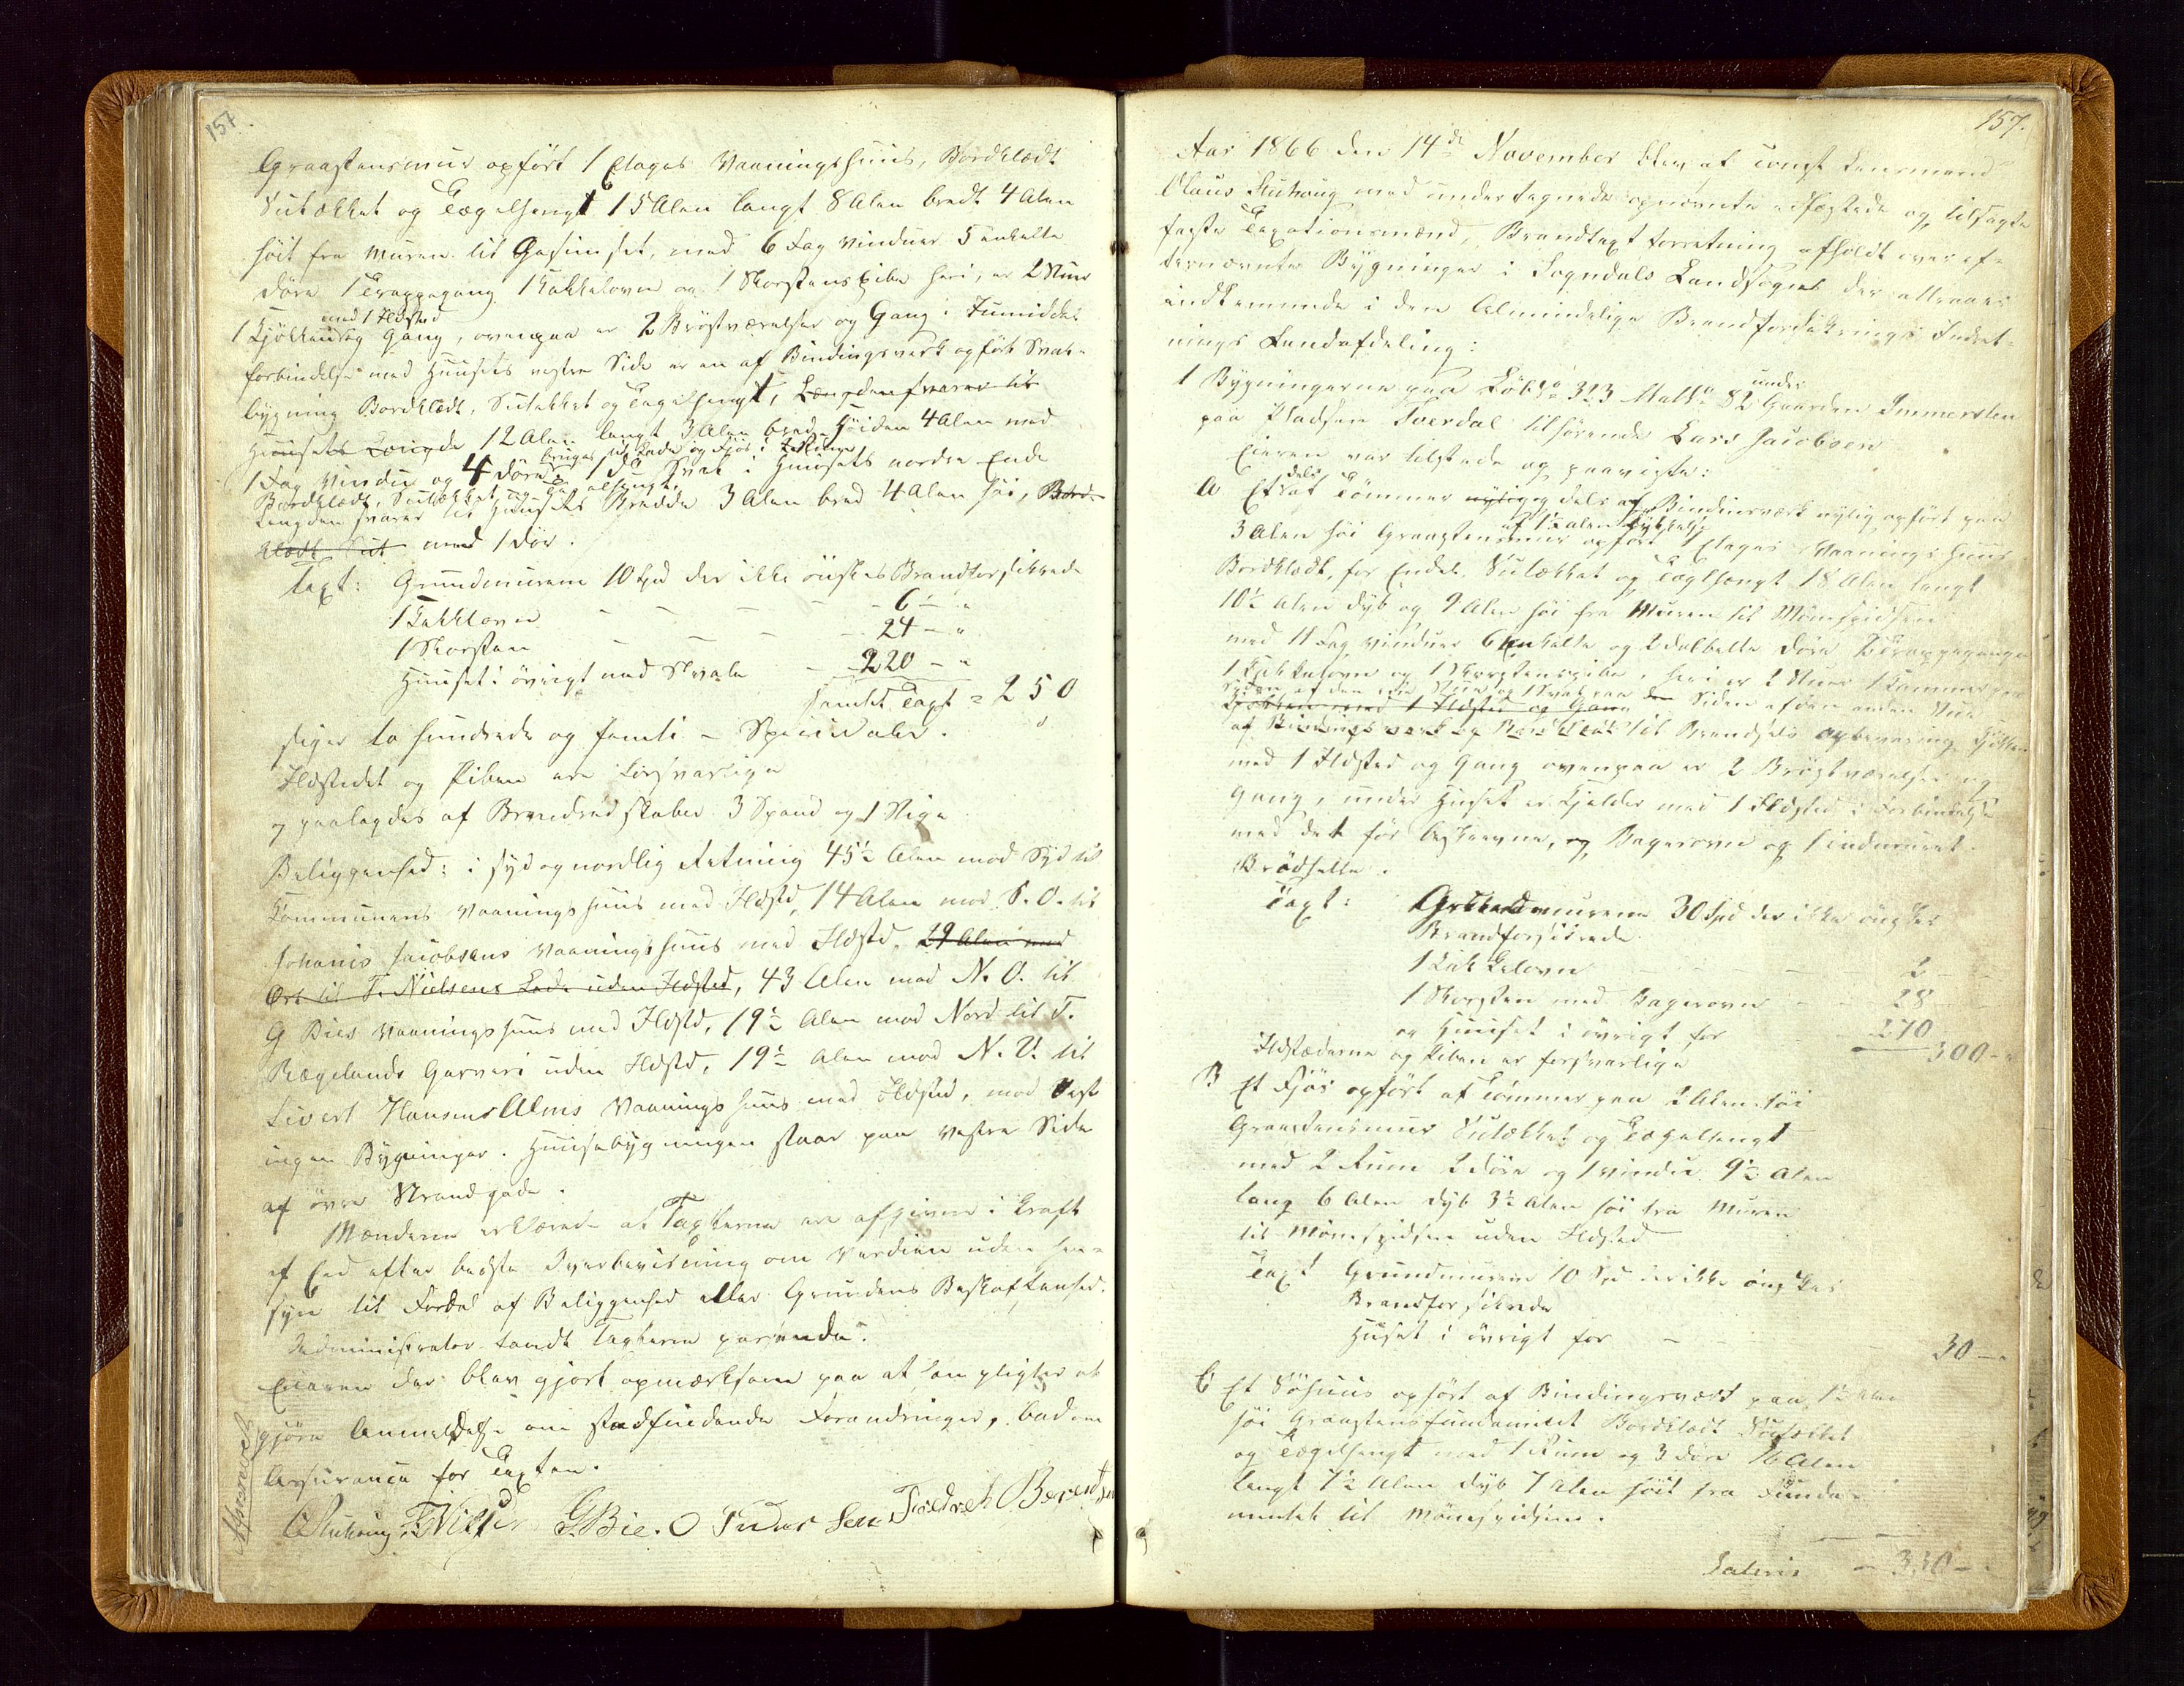 157.
Graastensmur opført 1 Etages Vaaningshuus, Bordklædt
Sutækket og Tægelhengt 15 Alen langt 8 Alen bredt 4 Alen
høit fra Muren til Gesimset, med 6 Fag Vinduer 5 enkelte
Døre 1 Trappegang 1 Kakkelovn og 1 Skorstenspibe heri, er 2 Stuer
med 1 Ildsted
1 Kjøkken og Gang, ovenpaa er 2 Brøstværelser og Gang i Jumiddel
forbindelse med Huusets vestre Side er en af Bindingsverk opført Sval-
bygning Bordklædt, Sutækket og Tægelhengt, Længden svarer til
Huusets Længde 12 Alen langt 3 Alen bred Høiden 4 Alen med
bruges til Lade og Fjøs i
1 Fag Vindu og 4 Døre 1 do Sval i Huusets nordre Ende
Bordklædt, Sutækket og Tægelhengt,
Længden svarer til Huusets Bredde 3 Alen bred 4 Alen høi, Bord-
klædt Sut med 1 Dør.
Taxt: Grundmurene 10 Spd der ikke ønskes Brandforsikrede
1 Kakkelovn - - - - 6 - "
1 Skorsten - - - - 24 - "
Huuset i øvrigt med Svale - 220 - "
samlet Taxt = 250
siger to hundrede og femti - Speciedaler.
Ildstedet og Piben ere forsvarlige
og paalagdes af Brandredskaber 3 Spand og 1 Stige
Beliggenhed: i syd og nordlig Retning 45½ Alen mod Syd til
Kommunens Vaaningshuus med Ildsted, 14 Alen mod S. O. til
Johanis Jacobsens Vaaningshuus med Ildsted, 29 Alen mod
Øst til T. Nielsens Lade uden Ildsted, 43 Alen mod N. O. til
G Bies Vaaningshuus med Ildsted, 19½ Alen mod Nord til T.
Rægelands Garveri uden Ildsted, 19½ Alen mod N. V. til
Sivert Hansens Alms Vaaningshuus med Ildsted, mod Vest
ingen Bygninger. Huusebygningen staar paa vestre Side
af øvre Strandgade.
Mændene erklærede at Taxterne ere afgivne i Kraft
af Eed efter bedste Overbeviisning om Verdien uden Hen-
syn til Fordel af Beliggenhed eller Grundens Beskaffenhed.
Administrator fandt Taxterne passende.
Eieren der blev gjort opmærksom paa at han pligter at
gjøre Anmeldelse om stedfindende Forandringer, bad om
Assurance for Taxten.
OStuhoug. TNielsen GBie. O Tudor Sen Fredrek Berentsen
157.
Aar 1866 den 14de November blev af const Lensmand
Olaus Stuhoug med undertegnede opnævnte edfæstede og tilsagte
faste Taxationsmænd, Brandtaxtforretning afholdt over ef-
ternævnte Bygninger i Sogndals Landsogn der attraaes
indkommende i den Almindelige Brandforsikrings Indret-
nings Landafdeling:
1 Bygningerne paa Løbno 323 Matno 82 under Gaarden Immerslen
paa Pladsen Sverdal tilhørende Lars Jacobsen
Eieren var tilstede og paaviste:
A Et dels af Tømmer nylig og dels af Bindinsværk nylig opført paa
3 Alen høi Graastensmur af 1½ Alen Tykkelse opført 1 Etages Vaaningshuus
Bordklædt, for Endel Sutækket og Tæglhængt 18 Alen langt
10½ Alen dyb og 9 Alen høi fra Muren til Mønespidsen
med 11 Fag Vinduer 6 Enkelte og 2 dobbelte Døre 2 Trappegange
1 Kakkelovn og 1 Skorstenspibe, heri er 2 Stuer 1 Kammer paa
Siden af den ene Stue og 1 Sval paa den Siden af den anden Stue
Kjøkken med 1 Ildsted og Gang
af Bindingsverk og Bordklædt til Brændsels opbevaring Kjøkken
med 1 Ildsted og Gang ovenpaa er 2 Brøstværelser og
Gang, under Huset er Kjelder med 1 Ildsted i Forbindelse
med det før beskrevne, og Bagerovn og 1 indmuret
Brødhelle.
Taxt: Grundmurene 30 Spd der ikke ønskes
Brandforsikrede
1 Kakkelovn - - - 2 - -
1 Skorsten med Bagerovn - - 28
og Huuset i øvrigt for - 270
300 - "
Ildstæderne og Piben er forsvarlige
B Et Fjøs opført af Tømmer paa 2 Alen høi
Graastensmur Sutækket og Tægelhengt
med 2 Rum 2 Døre og 1 Vindu. 9½ Alen
lang 6 Alen dyb 3½ Alen høi fra Muren
til Mønespidsen uden Ildsted
Taxt Grundmurene 10 Spd der ikke ønskes
Brandforsikrede
Huset i øvrigt for - - 30 - "
C Et Søhuus opført af Bindingsverk paa 1½ Alen
høi Graastensfundament Bordklædt Sutækket
og Tægelhengt med 1 Rum og 3 Døre 16 Alen
langt 7½ Alen dyb 7 Alen høit fra Funda-
mentet til Mønespidsen.
Lateris - 330 - "